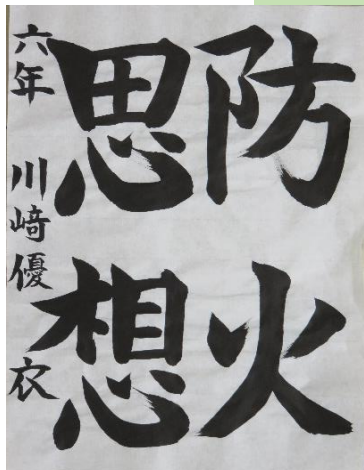 防火
思想
六年 川﨑優衣